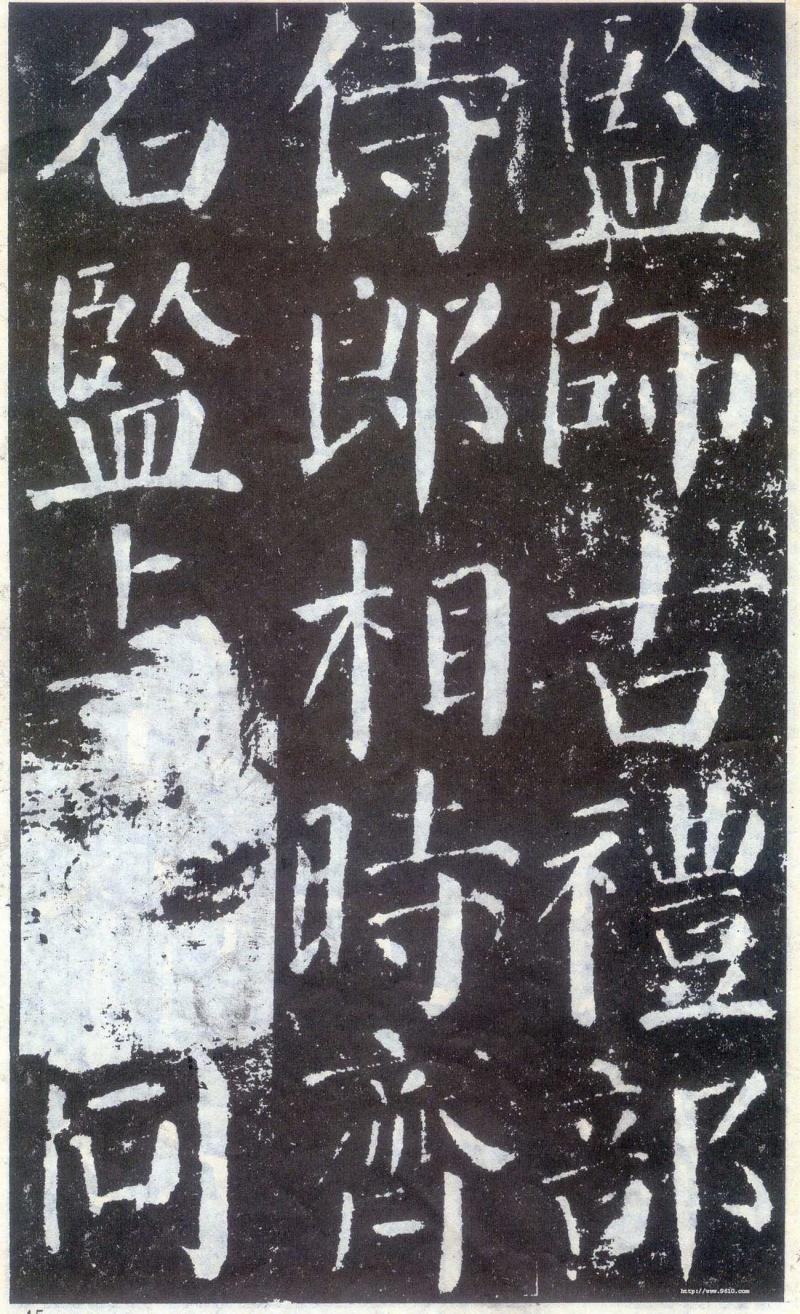 監師古禮部
侍郎相時齊
名監同
http://www.9610.com